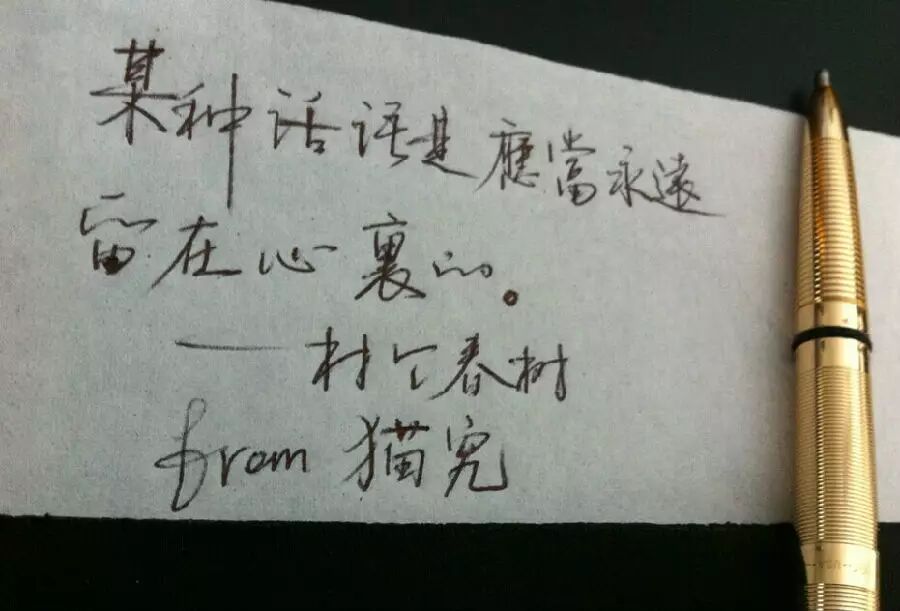 某种话语是應當永遠
留在心裏的。
——村上春树
from 猫究